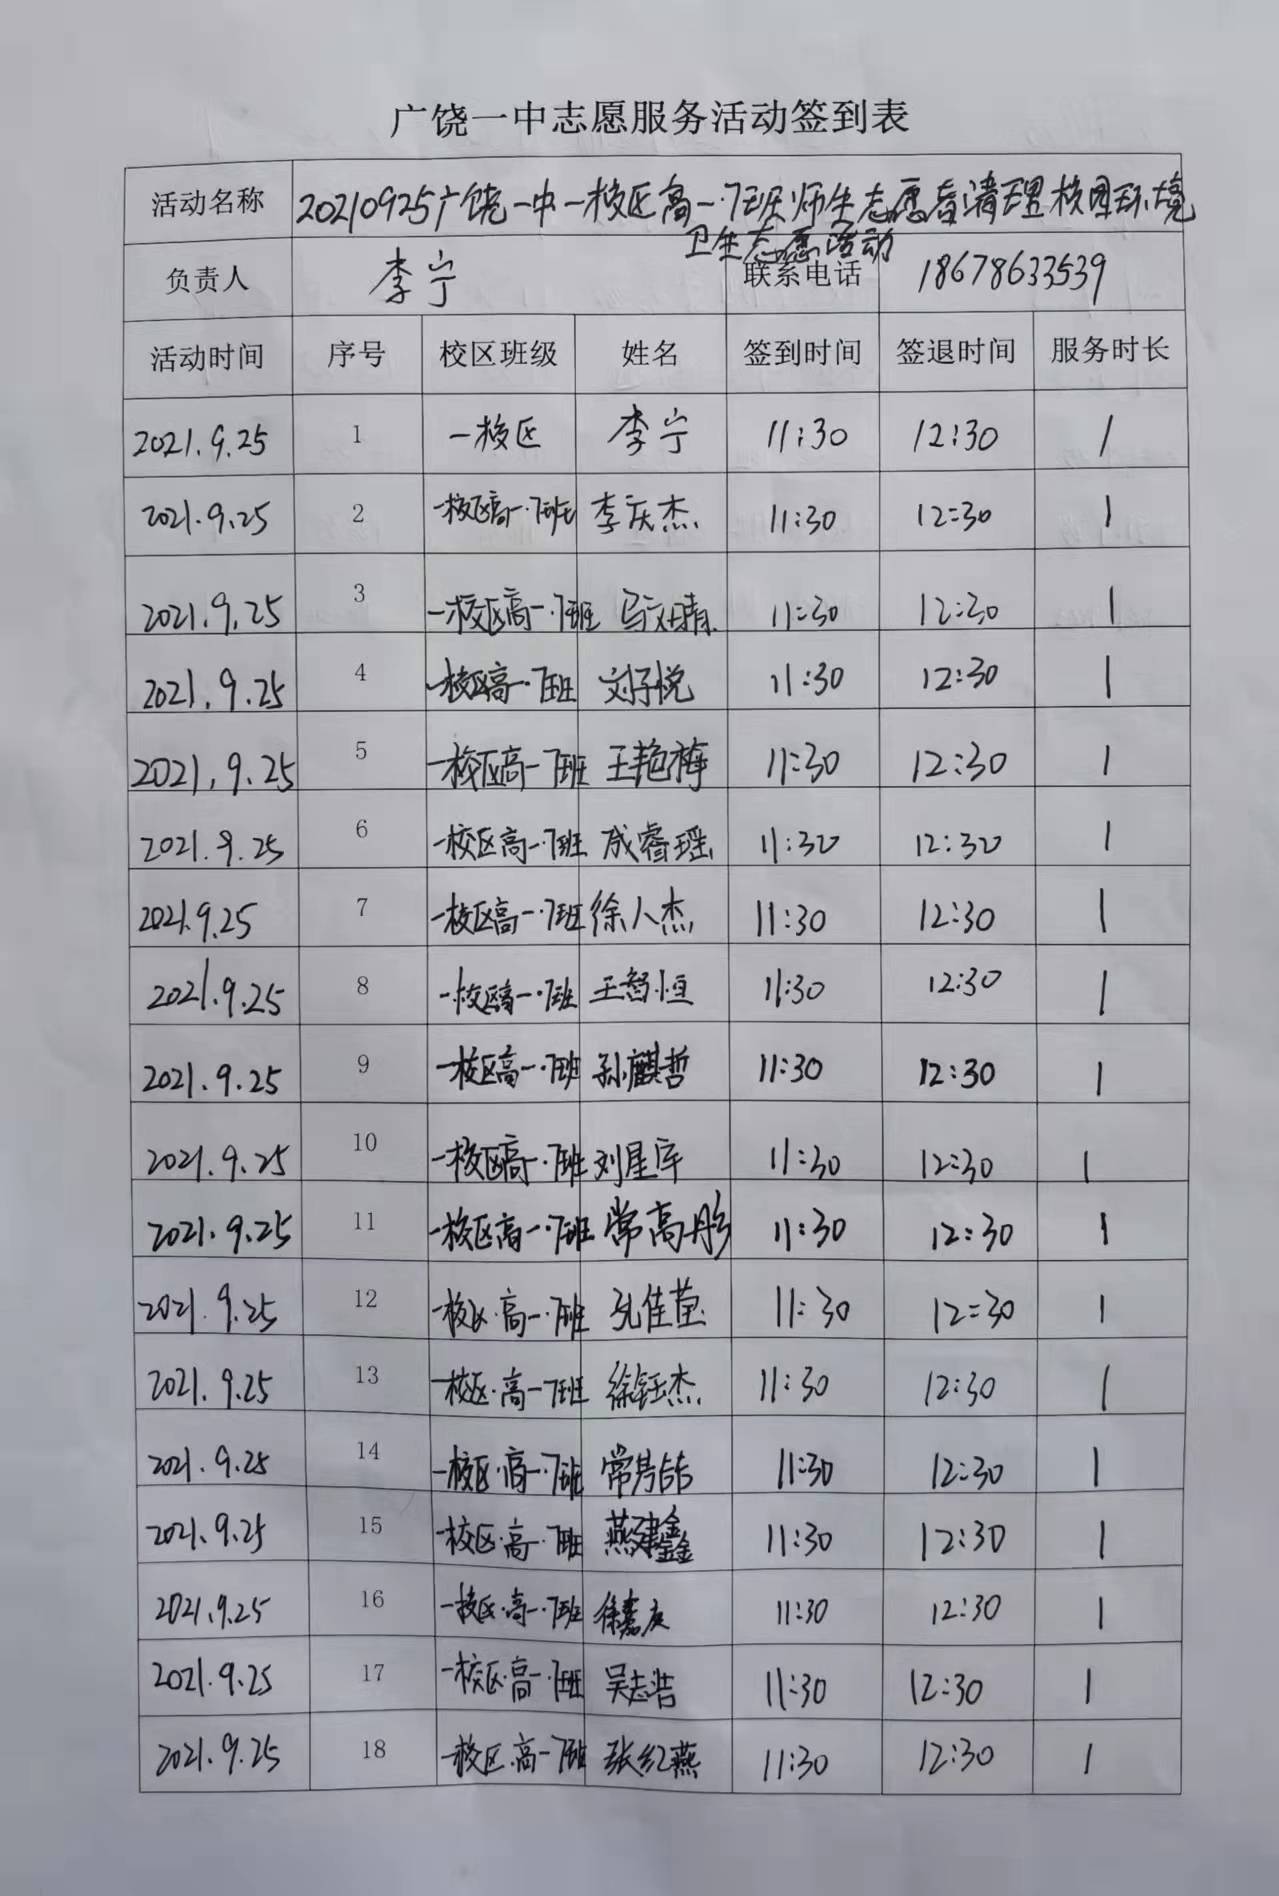 广饶一中志愿服务活动签到表
活动名称 20210925广饶一中一校区高一·7班师生志愿者清理校园环境
卫生志愿活动
负责人 李宁 联系电话 18678633539
活动时间 序号 校区班级 姓名 签到时间 签退时间 服务时长
2021.9.25 1 一校区 李宁 11:30 12:30 1
2021.9.25 2 一校区高一·7班 李庆杰 11:30 12:30 1
2021.9.25 3 一校区高一·7班 11:30 12:30 1
2021.9.25 4 一校区高一·7班 刘子悦 11:30 12:30 1
2021.9.25 5 一校区高一·7班 王艳梅 11:30 12:30 1
2021.9.25 6 一校区高一·7班 成睿瑶 11:30 12:30 1
2021.9.25 7 一校区高一·7班 徐人杰 11:30 12:30 1
2021.9.25 8 一校区高一·7班 王智恒 11:30 12:30 1
2021.9.25 9 一校区高一·7班 孙麒哲 11:30 12:30 1
2021.9.25 10 一校区高一·7班 11:30 12:30 1
2021.9.25 11 一校区高一·7班 常高彤 11:30 12:30 1
2021.9.25 12 一校区·高一·7班 孔佳莹 11:30 12:30 1
2021.9.25 13 一校区·高一7班 徐钰杰 11:30 12:30 1
2021.9.25 14 一校区·高一·7班 11:30 12:30 1
2021.9.25 15 一校区·高一·7班 燕建鑫 11:30 12:30 1
2021.9.25 16 一校区·高一·7班 11:30 12:30 1
2021.9.25 17 一校区·高一·7班 吴志浩 11:30 12:30 1
2021.9.25 18 一校区·高一7班 张红燕 11:30 12:30 1